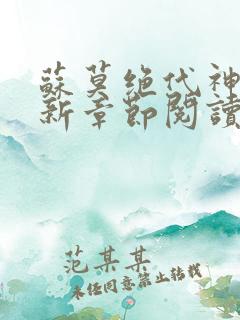 蘇莫绝代神
新章節閱讀
范某某
未经同意禁止转载